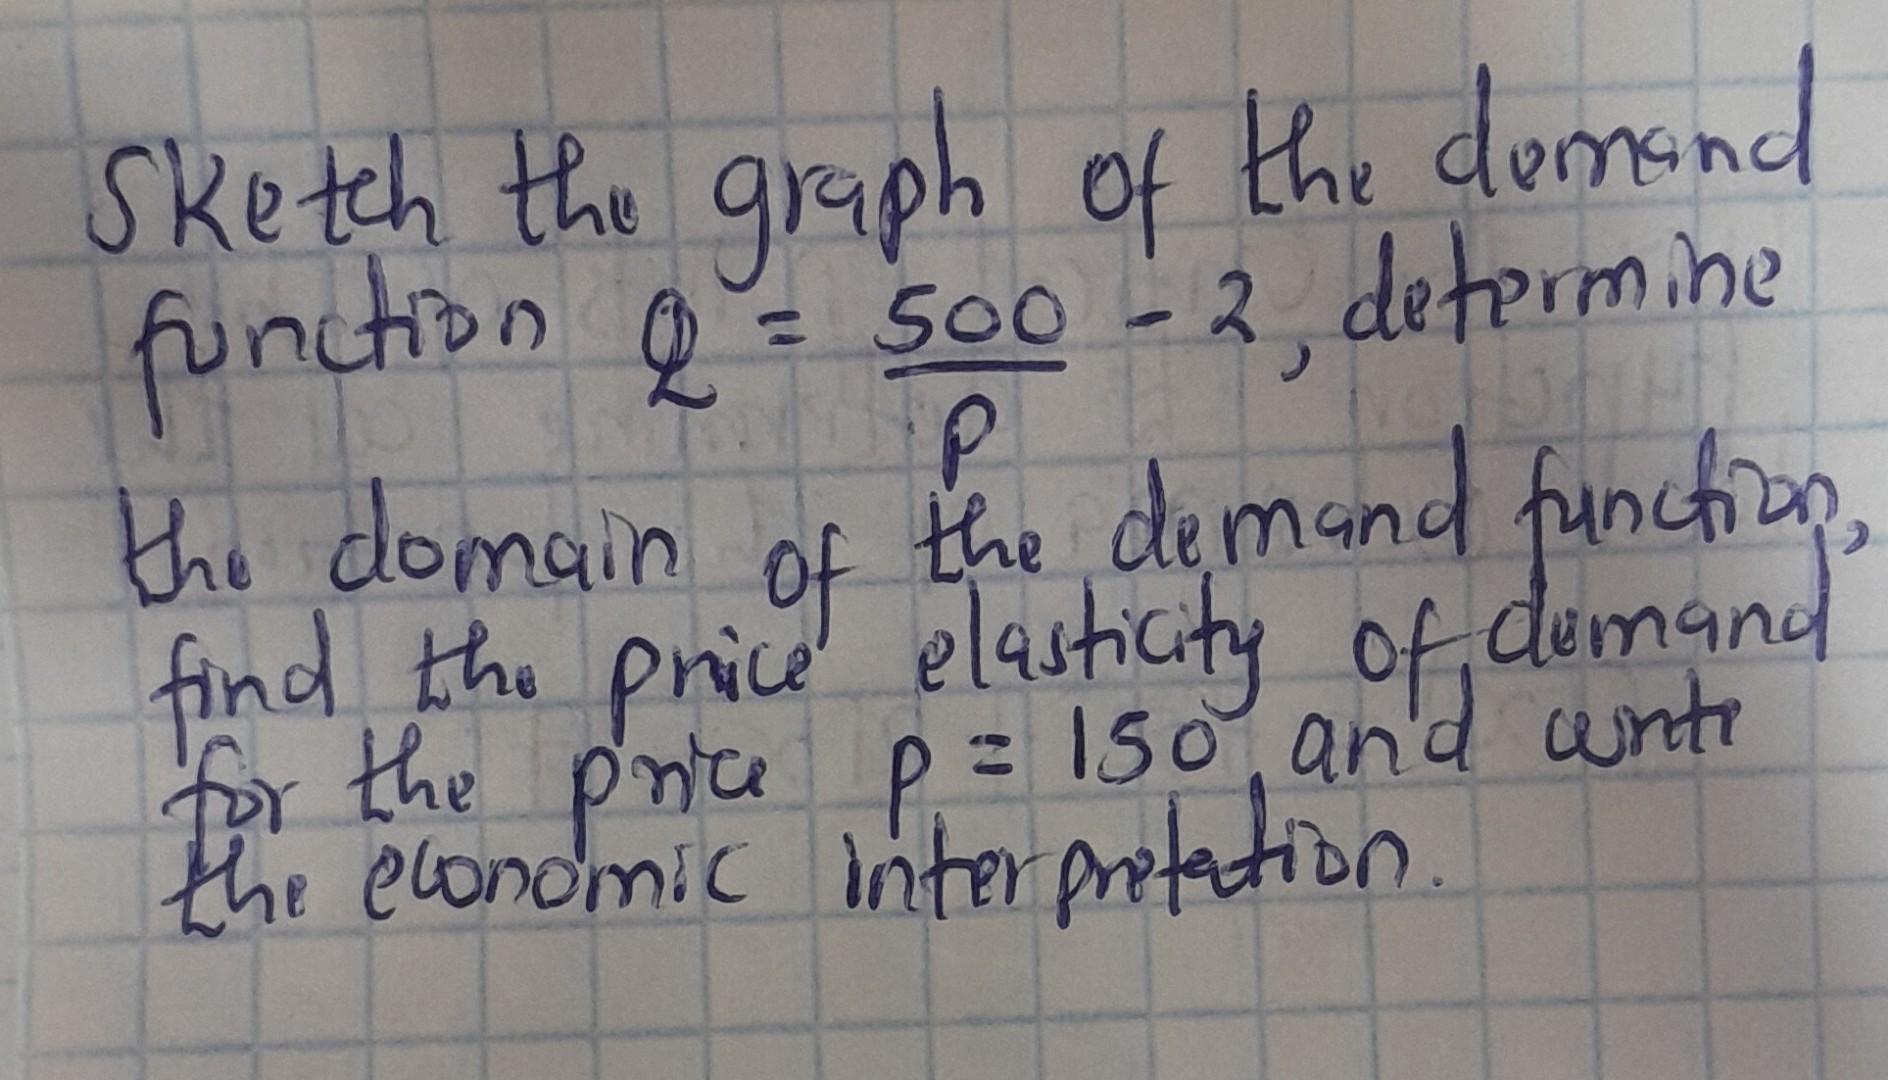 Sketch the graph of the demand
function Q = 500/p - 2, determine
the domain of the demand function,
find the price elasticity of demand
for the price p = 150, and write
the economic interpretation.